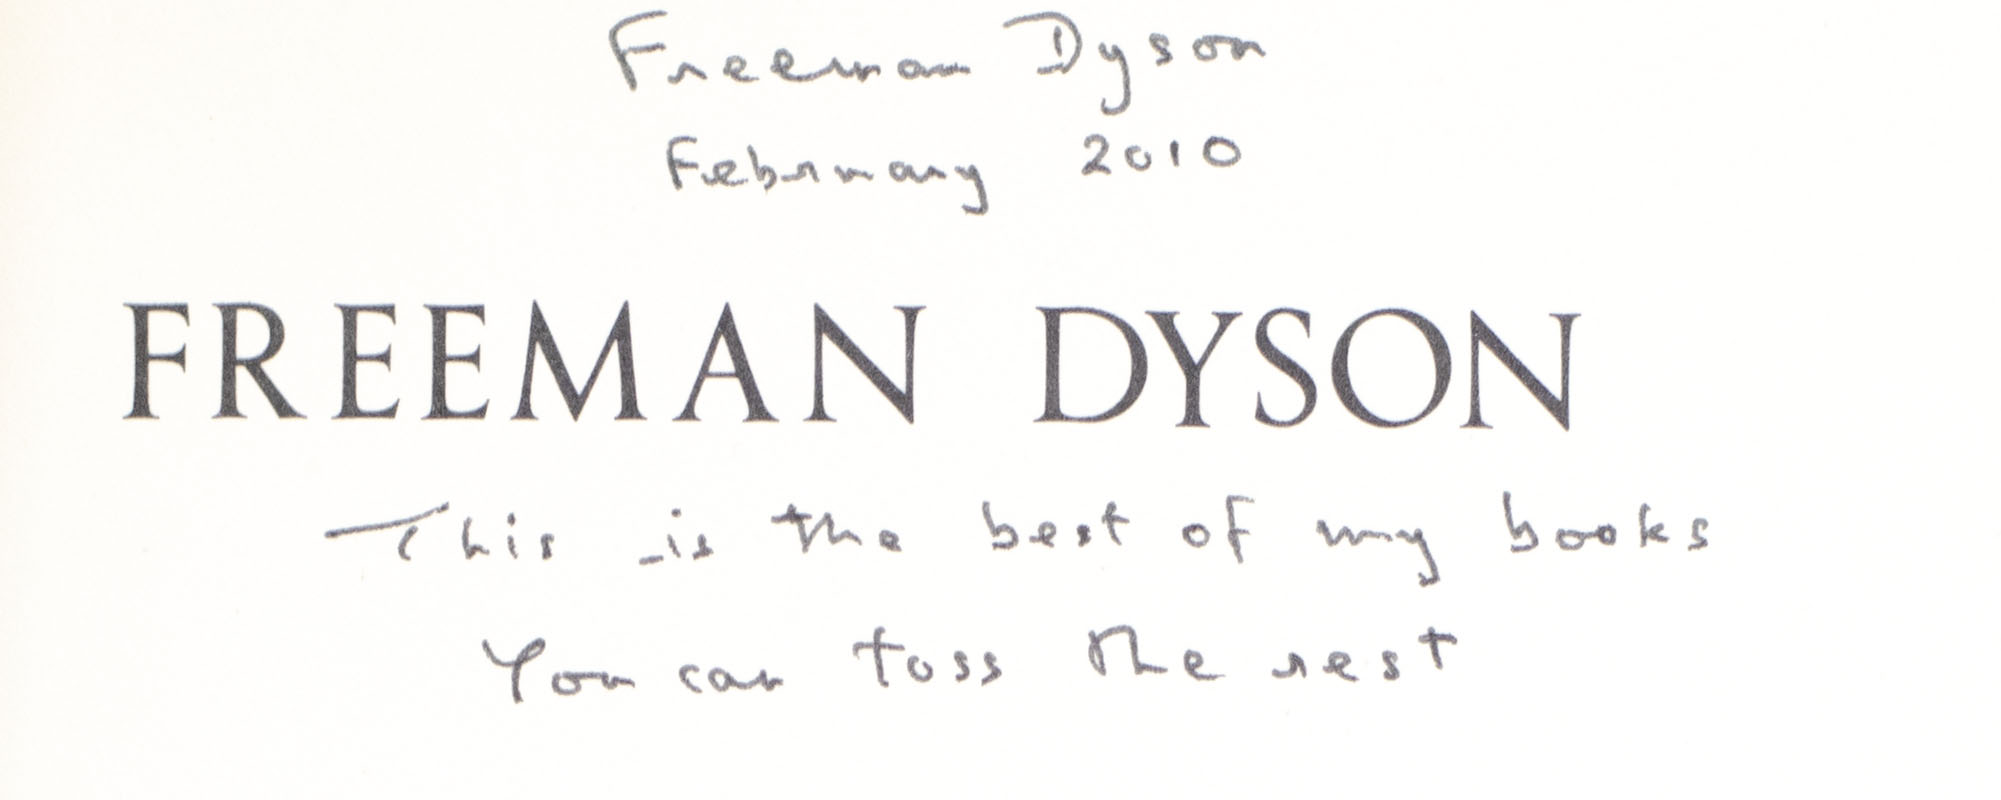 Freeman Dyson
February 2010
FREEMAN DYSON
This is the best of my books
You can toss the rest